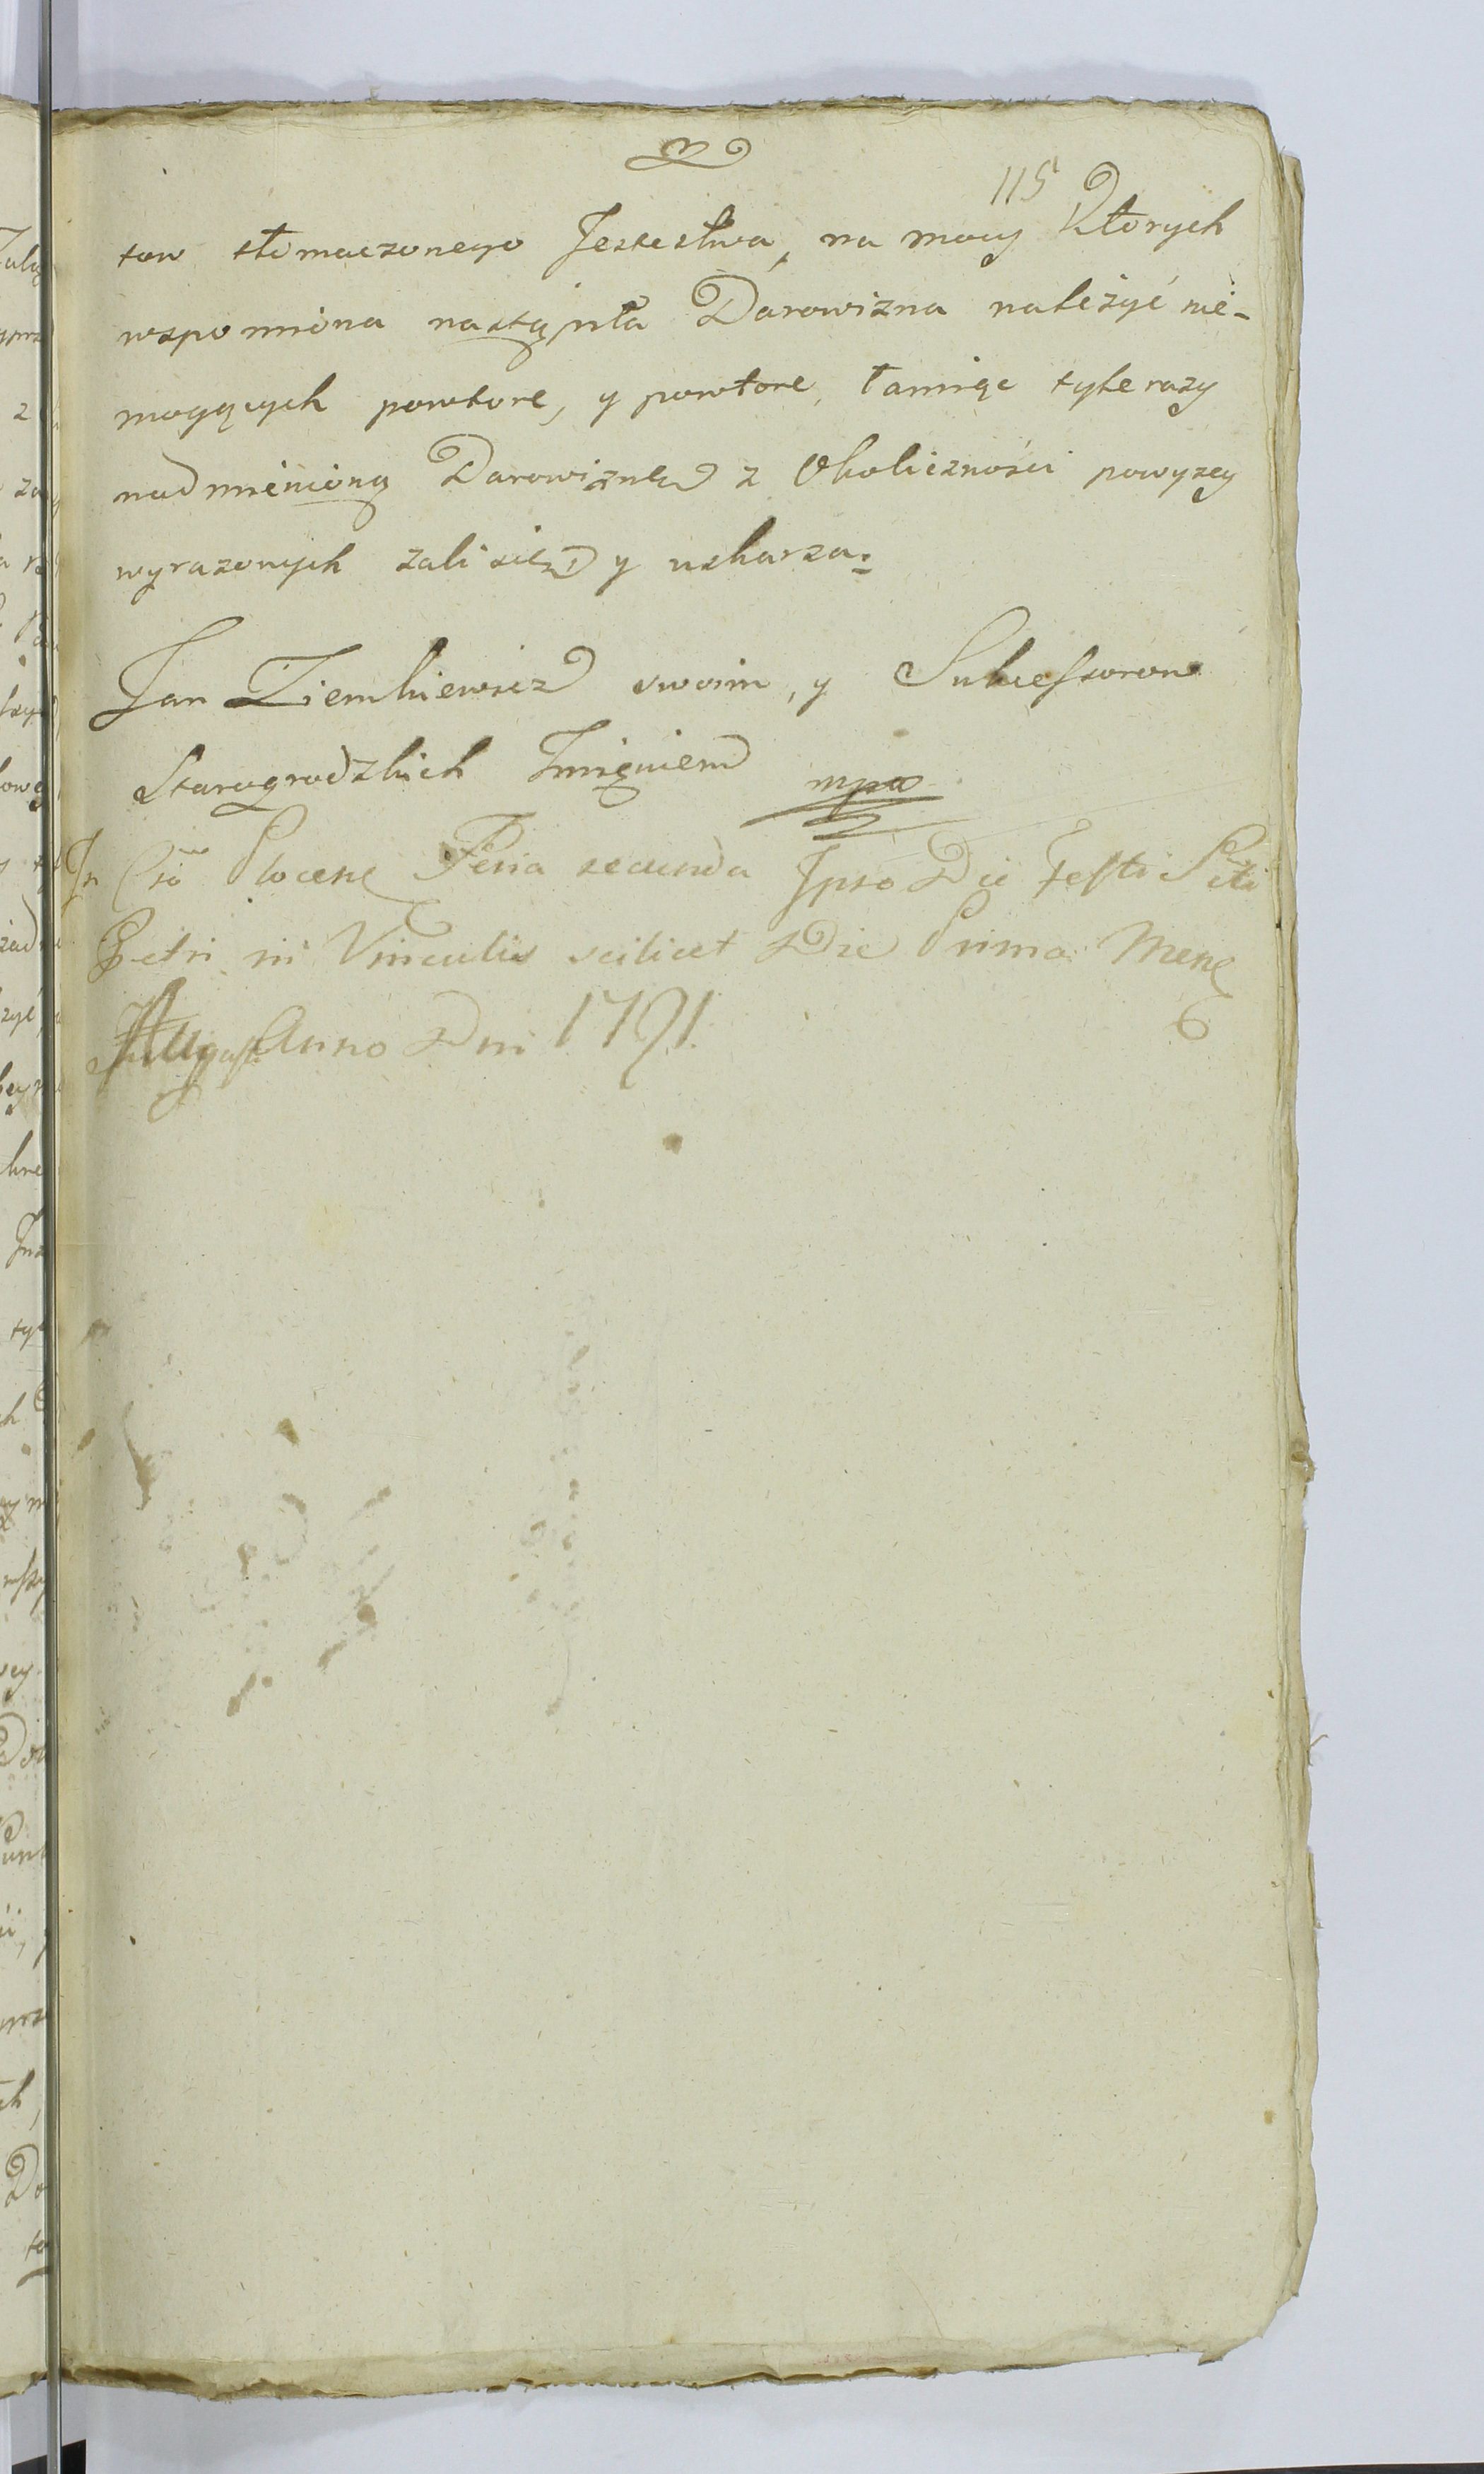 115
tow tłomaczonego Jestestwa, na mocy Ktorych
wspomniona nastąpiła Darowizna należyć nie-
mogących powtore, y powtore, łamiąc tyle razy
nadmienioną Darowiznę z Okoliczności powyzey
wyrazonych zali się y uskarza:
Jan Ziemkiewicz swoim, y Sukcessorow
Starogrodzkich Imięniem mpa
In Plocen Feria secunda Ipso Die Festi Scti
Petri in Vinculis scilicet Die Prima Mens
Augusti Anno Dni 1791.